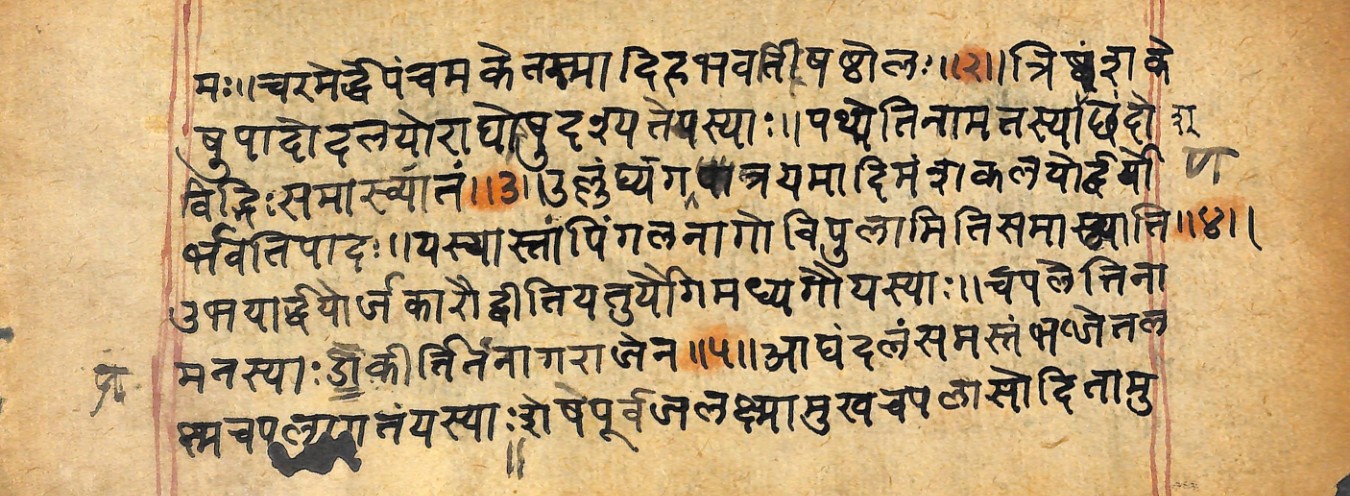 मः॥चरमेर्द्धेपंचमकेतस्मादिहभवतिषष्ठोलः॥२॥त्रिष्वंशके
षुपादोदलयोराद्येषुदृश्यतेयस्याः॥पथ्येतिनामतस्याछंदो
विद्भिःसमाख्यातं॥३॥उल्लंघ्यगणत्रयमादिमंशकलयोर्द्वयो
र्भवतिपादः॥यस्यास्तांपिंगलनागोविपुलामितिसमाख्याति॥४॥
उभयार्द्धयोर्जकारौद्वीतियतुर्यौगिमध्यगौयस्याः॥चपलेतिना
मतस्याःप्रकीर्त्तितंनागराजेन॥५॥आद्यंदलंसमस्तंभजेतल
क्ष्मचपलागतंयस्याःशेषेपूर्वजलक्ष्मामुखचपलासोदितामु